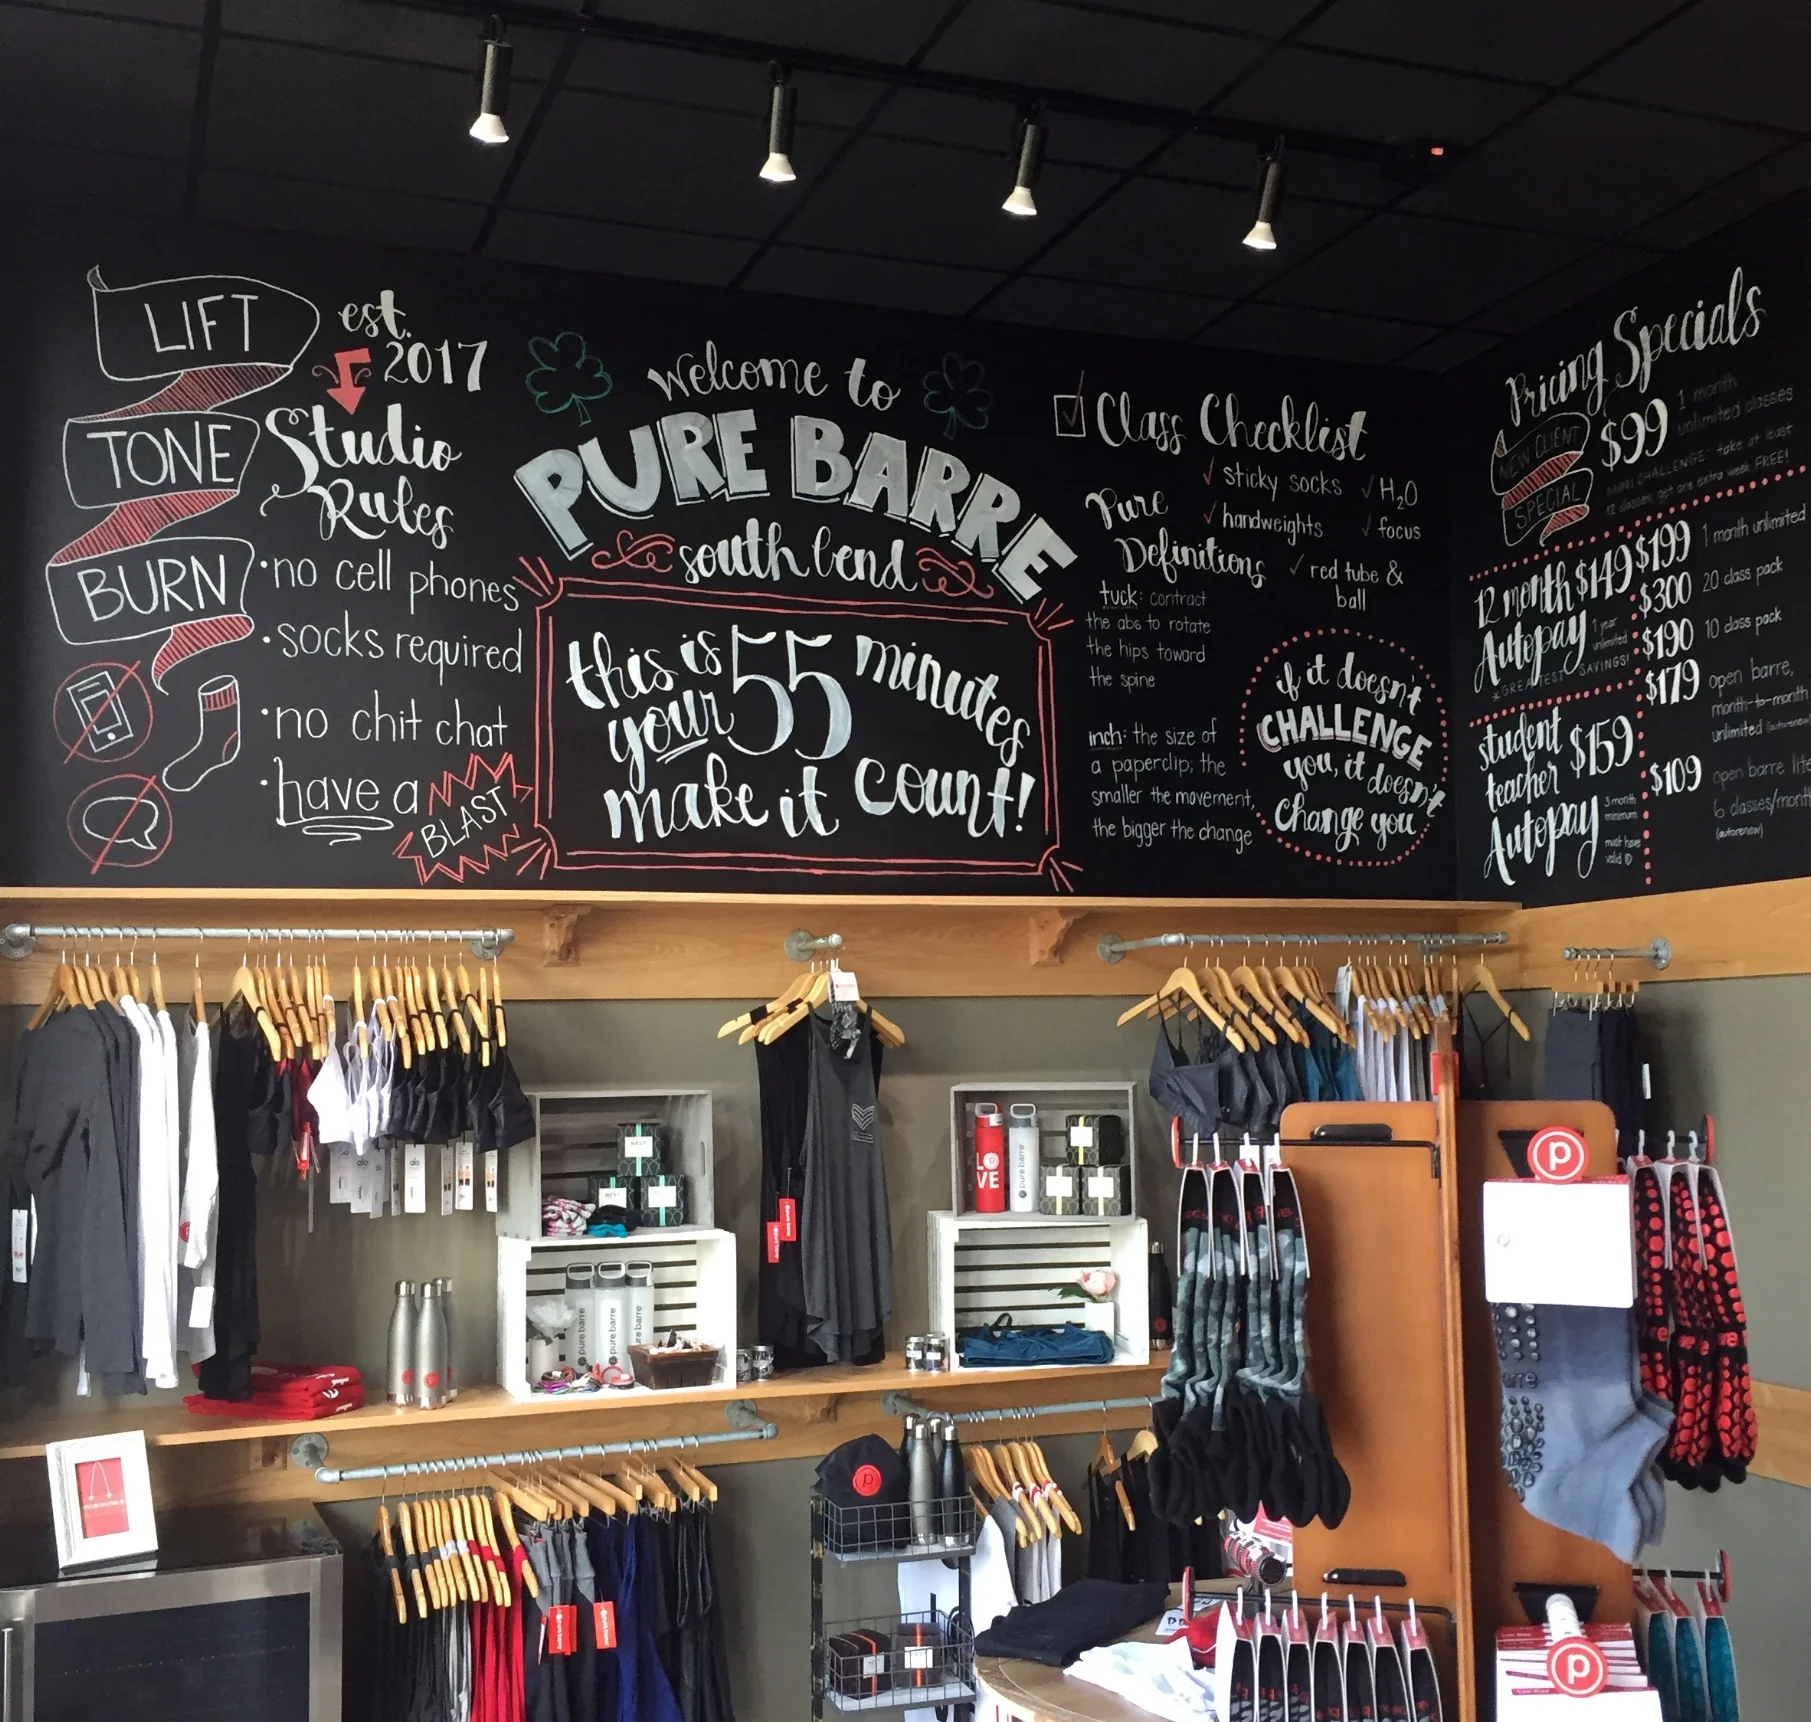 LIFT
TONE
BURN
est.
2017
Studio
Rules
•no cell phones
•socks required
•no chit chat
•have a
BLAST
Welcome to
PURE BARRE
south bend
this is 55 minutes
your
make it count!
Class Checklist
sticky socks
H₂O
handweights
focus
red tube &
ball
Pure
Definitions
tuck: contract
the abs to rotate
the hips toward
the spine
inch: the size of
a paperclip; the
smaller the movement,
the bigger the change
if it doesn't
CHALLENGE
you, it doesn't
change you
Pricing Specials
NEW CLIENT
SPECIAL
$99
1 month
unlimited classes
MINI CHALLENGE: take at least
12 classes, get one extra week FREE!
12 month $149
Autopay
1 year
unlimited
*GREATEST SAVINGS!
student
teacher $159
Autopay
3 month
minimum
must have
valid ID
$199 1 month unlimited
$300 20 class pack
$190 10 class pack
$179 open barre,
month-to-month
unlimited
$109 open barre lite
6 classes/month
(autorenew)
LO
VE
pure barre
NEST
pure barre
pure barre
pure barre
alo
p
p
p